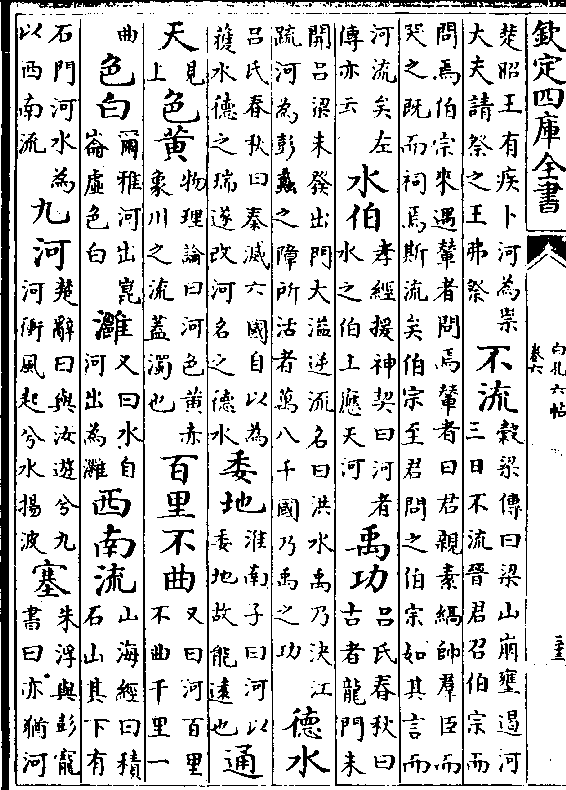 欽定四庫全書
白孔六帖
卷六
楚昭王有疾卜河為祟大夫請祭之王弗祭不流榖梁傳曰梁山崩壅遏河三日不流晉君召伯宗而
問焉伯宗來遇輦者問焉輦者曰君親素縞帥羣臣而哭之既而祠焉斯流矣伯宗至君問之伯宗如其言而
河流矣左傳亦云水伯孝經援神契曰河者水之伯上應天河禹功吕氏春秋曰古者龍門未
開吕梁未發出門大溢逆流名曰洪水禹乃決江疏河為彭蠡之障所活者萬八千國乃禹之功德水
吕氏春秋曰秦滅六國自以為獲水德之瑞遂改河名之德水委地淮南子曰河以委地故能遠也通
天見上色黄物理論曰河色黄赤象川之流蓋濁也百里不曲又曰河百里不曲千里一
曲色白爾雅河出崑崙虛色白灉又曰水自河出為灉西南流山海經曰積石山其下有
石門河水為以西南流九河楚辭曰與汝遊兮九河衝風起兮水揚波塞朱浮與彭寵書曰亦猶河